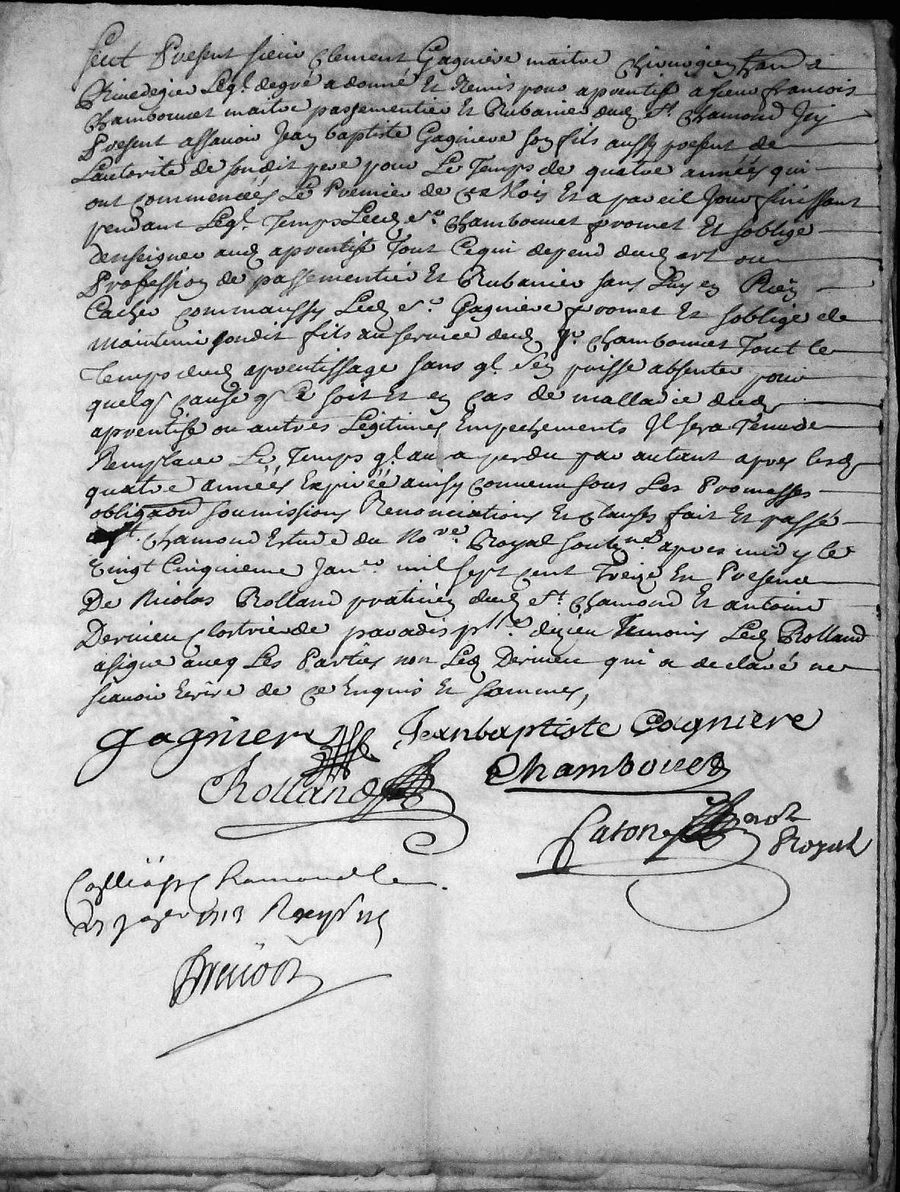 Feut Present sieur Clement Gagniere maitre Chirurgien hand a
Rivedegier Leql. degré a donné Et Remis pour aprentif a sieur francois
Chambonnet maitre passementier Et Rubanier dud. St. Chamond Icy
Present assauoir Jean baptiste Gagniere son fils aussy present de
Lautorité de sondit pere pour Le Temps de quatre années qui
ont commencées Le Premier de ce Mois Et a pareil Jour finissant
pendant Leql. Temps Led. sr. Chambonnet promet Et soblige
denseigner aud. aprentif Tout Cequi depend dud. art ou
Profession de passementier Et Rubanier sans Luy en Rien
Cacher commaussy Led. sr. Gagniere promet Et soblige de
maintenir sondit fils au seruice dud. sr. Chambonnet Tout le
Temps dud. aprentissage sans ql. s'en puisse absenter pour
quelq. cause q. ce soit Et en cas de malladie dud.
aprentif ou autres Legitimes Empechements Il sera Tenu de
Remplacer Le Temps ql. aura perdu par autant apres lesd.
quatre années Expirée ainsy conuenu sous Les Promesses
obligaon soumissions Renonciations Et clauses fait Et passé
St. Chamond Estude du Nore. Royal soubne. apres midy le
Vingt Cinquieme Janer. mil sept cent Treize En Presence
De Nicolas Rolland praticien dud. St. Chamond Et antoine
Dernieu de paradis Temoins Led. Rolland
asigné aueq Les Parties non Led. Dernieu qui a declaré ne
scauoir Ecrire de ce Enquis Et sommés,
gagniere Jeanbaptiste Gagniere
Rolland Chambouet
Royal
1713